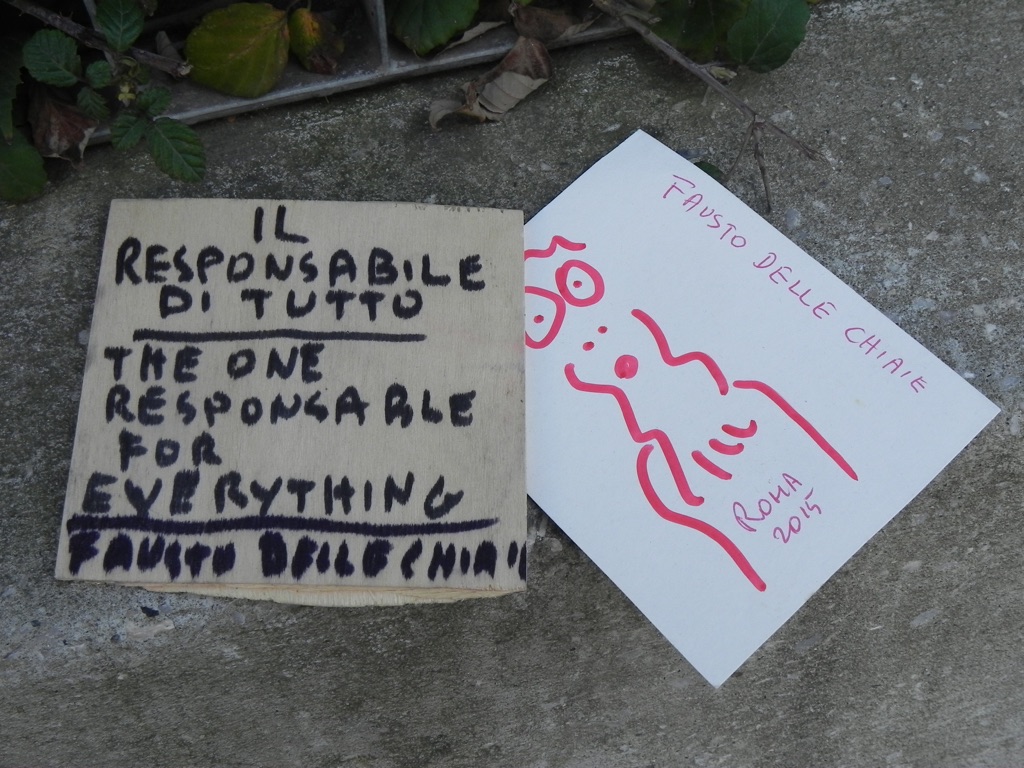 IL
RESPONSABILE
DI TUTTO
THE ONE
RESPONSABLE
FOR
EVERYTHING
FAUSTO DELLE CHIAIE
FAUSTO DELLE CHIAIE
ROMA
2015